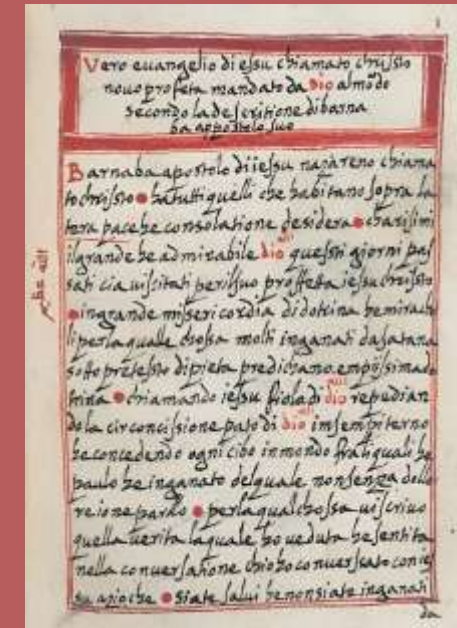 1
Vero euangelio di essu chiamato chrissto
nouo profeta mandato da dio al mōdo
secondo la descritione di barna
ba appostolo suo
Barnaba apostolo di iessu nazareno chiama
to chrissto ha tutti quelli che habitano sopra la
tera pace he consolatione desidera charisimi
il grande he admirabile dio questi giorni pas
sati cia uissitati per il suo proffeta iessu chrissto
in grande missericordia di dotrina he mirach
li per la qualle chossa molti inganati da satana
sotto pretessto di pieta predichano empissima do
trina chiamando iessu fiolo di dio repudian
do la circoncissione pato di dio in sempiterno
he concedendo ogni cibo inmondo fra li quali he
paulo he inganato del quale non senza dollo
re ione parlo per la qual chossa ui scriuo
quella uerita la quale ho ueduta he sentita
nella conuersatione chio ho conuerssato con ie
su acioche siate salui he non siate inganati
da